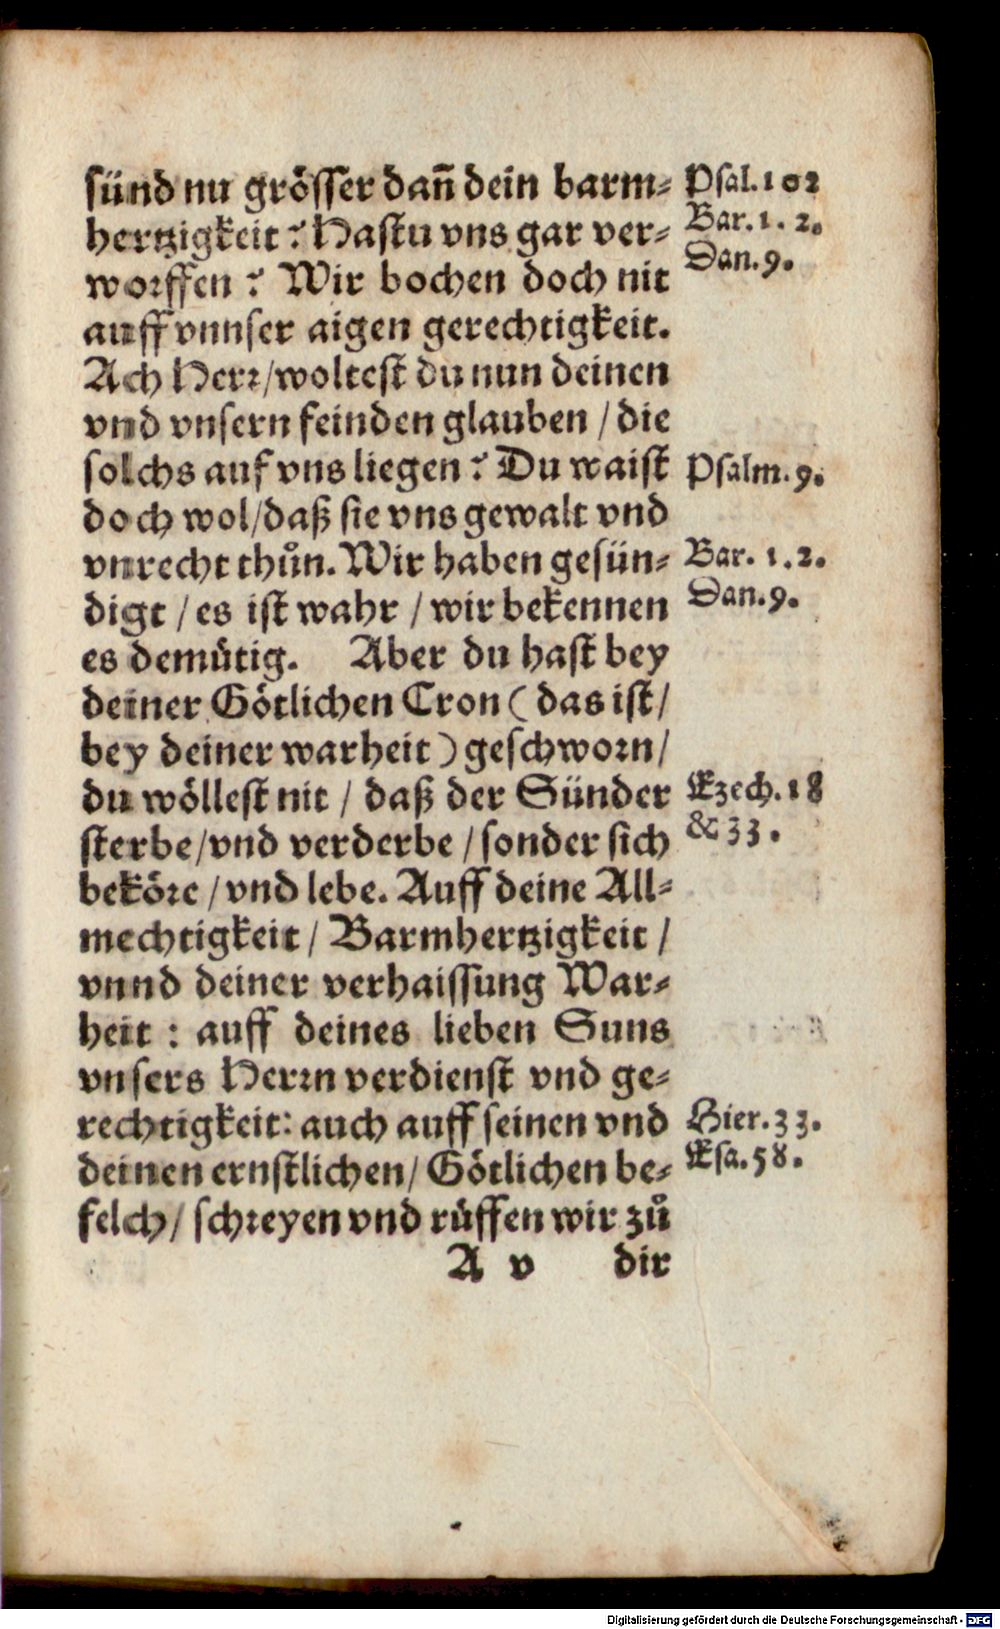 sünd nu grösser dañ dein barm-
hertzigkeit? Hastu vns gar ver-
worffen? Wir bochen doch nit
auff vnnser aigen gerechtigkeit.
Ach Herr/woltest du nun deinen
vnd vnsern feinden glauben/die
solchs auf vns liegen? Du waist
doch wol/daß sie vns gewalt vnd
vnrecht thůn. Wir haben gesün-
digt/es ist wahr/wir bekennen
es demütig. Aber du hast bey
deiner Götlichen Cron (das ist/
bey deiner warheit) geschworn/
du wöllest nit/daß der Sünder
sterbe/vnd verderbe/sonder sich
beköre/vnd lebe. Auff deine All-
mechtigkeit/Barmhertzigkeit/
vnnd deiner verhaissung War-
heit: auff deines lieben Suns
vnsers Herrn verdienst vnd ge-
rechtigkeit: auch auff seinen vnd
deinen ernstlichen/Götlichen be-
felch/schreyen vnd rüffen wir zů
A v dir
Psal. 102
Bar. 1. 2.
Dan. 9.
Psalm. 9.
Bar. 1. 2.
Dan. 9.
Ezech. 18
& 33.
Hier. 33.
Esa. 58.
Digitalisierung gefördert durch die Deutsche Forschungsgemeinschaft - DFG